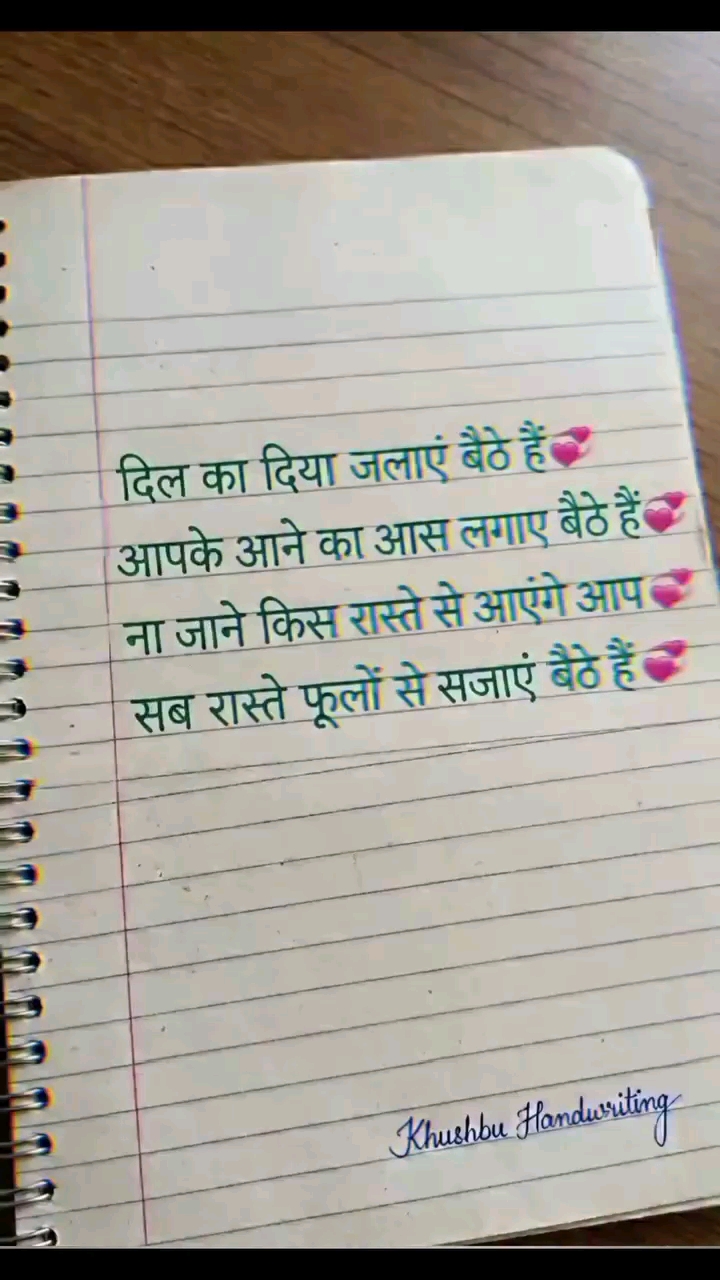 दिल का दिया जलाएं बैठे हैं💞
आपके आने का आस लगाए बैठे हैं💞
ना जाने किस रास्ते से आएंगे आप💞
सब रास्ते फूलों से सजाएं बैठे हैं💞
Khushbu Handwriting